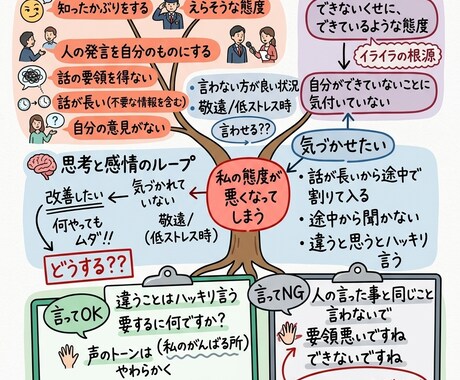 知ったかぶりをする
えらそうな態度
人の発言を自分のものにする
話の要領を得ない
話が長い(不要な情報を含む)
自分の意見がない
できないくせに、
できているような態度
イライラの根源
自分ができていないことに
気付いていない
・言わない方が良い状況
・敬遠/低ストレス時
言わせる??
気づかせたい
・話が長いから途中で
割りて入る
・途中から聞かない
・違うと思うとハッキリ
言う
思考と感情のループ
私の態度が
悪くなって
しまう
気づかれて
いない
敬遠/
(低ストレス時)
改善したい
何やっても
ムダ!!
どうする??
言ってOK
違うことはハッキリ言う
要するに何ですか?
声のトーンは(私のがんばる所)
やわらかく
言ってNG
人の言った事と同じこと
言わないで
要領悪いですね
できないですね